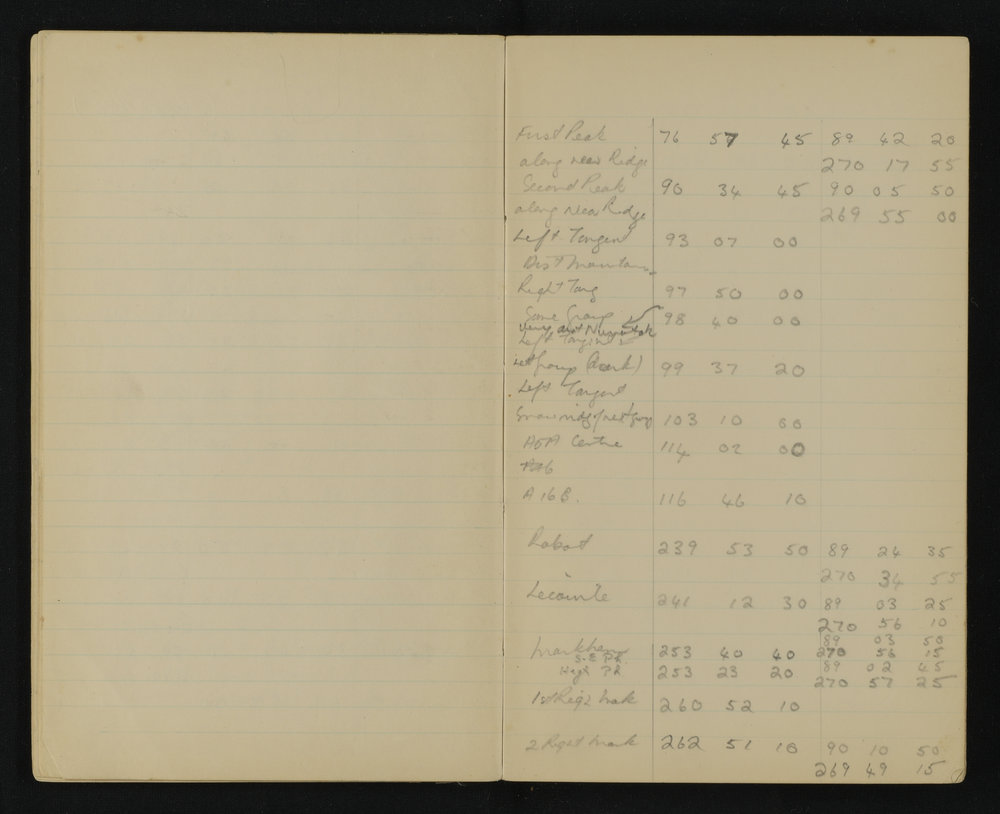 First Peak 76 57 45 89 42 20
along near Ridge 270 17 55
Second Peak 90 34 45 90 05 50
along Near Ridge 269 55 00
Left Tangent 93 07 00
Dist Mountain
Right Tang 97 50 00
Same Group 98 40 00
Very dist Nunatak
Left Tangent
group (dark) 99 37 20
Left Tangent
Snow ridge next group 103 10 00
Centre 114 02 00
A 16 B. 116 46 10
Rabot 239 53 50 89 24 35
270 34 55
Lecointe 241 12 30 89 03 25
270 56 10
89 03 50
Markham 253 40 40 270 56 15
S.E Pk
89 02 45
High Pk 253 23 20
270 57 25
1st Right Mark 260 52 10
2 Right Mark 262 51 10 90 10 50
269 49 15